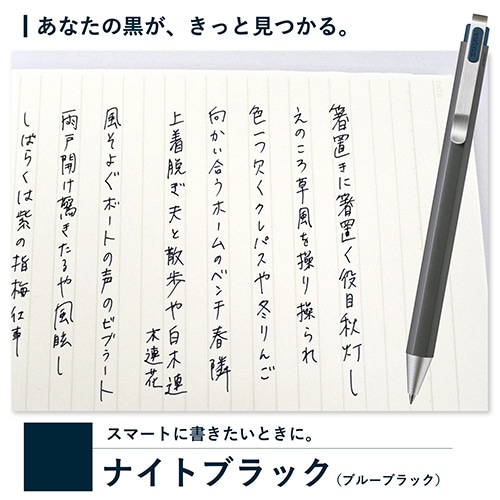 あなたの黒が、きっと見つかる。
箸置きに箸置く役目秋灯し
えのころ草風を操り操られ
色一つ欠くクレパスや冬りんご
向かい合うホームのベンチ春隣
上着脱ぎ夫と散歩や白木蓮
木蓮花
風そよぐボートの声のビブラート
雨戸開け驚きたるや風眩し
しばらくは紫の指梅仕事
スマートに書きたいときに。
ナイトブラック（ブルーブラック）